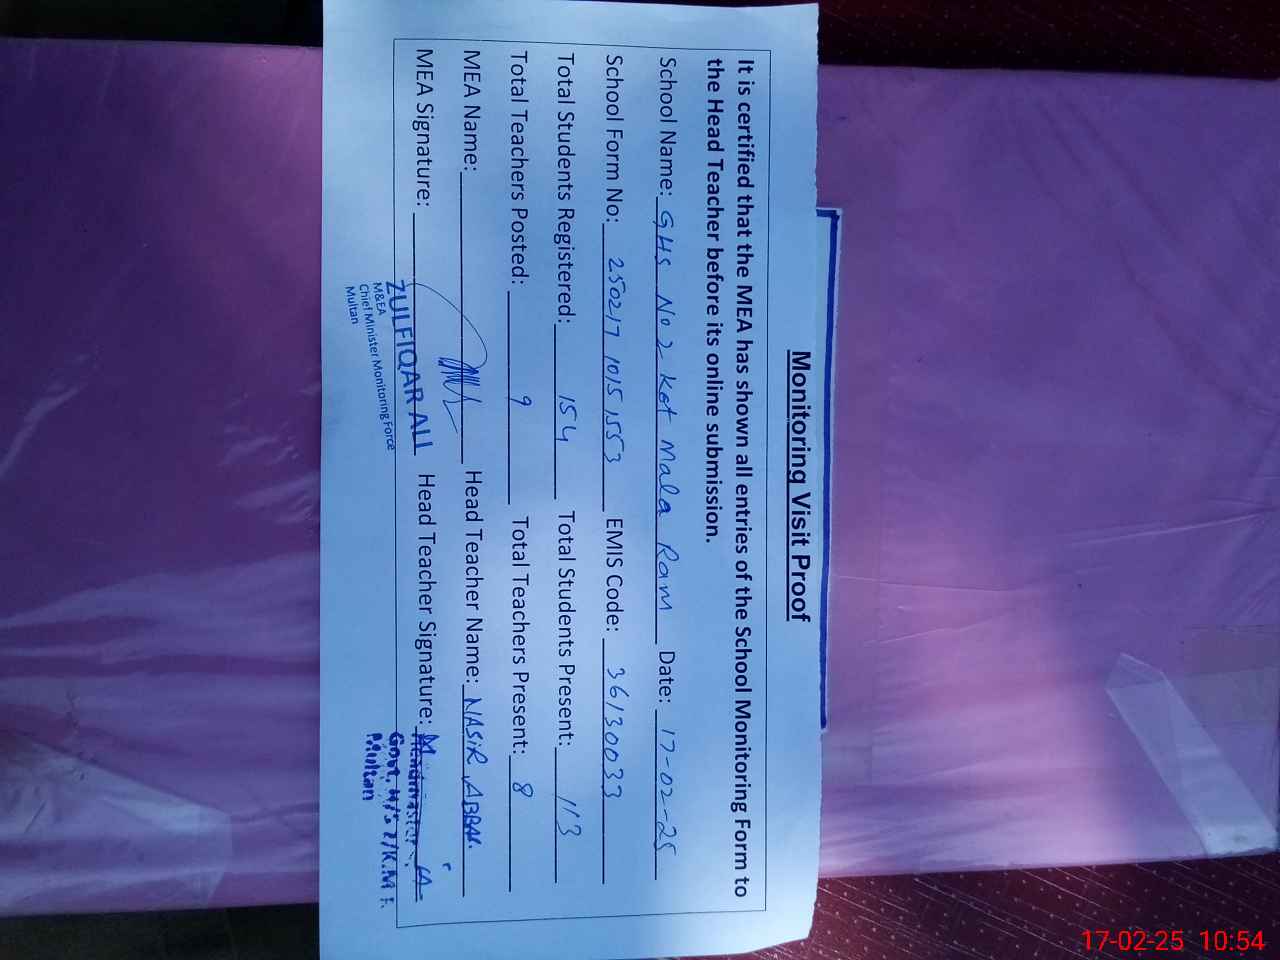 Monitoring Visit Proof
It is certified that the MEA has shown all entries of the School Monitoring Form to
the Head Teacher before its online submission.
School Name: GHS No 2 Kot Mala Ram Date: 17-02-25
School Form No: 250217 1015 1553 EMIS Code: 36130033
Total Students Registered: 154 Total Students Present: 113
Total Teachers Posted: 9 Total Teachers Present: 8
MEA Name: Head Teacher Name: NASIR ABBAS
MEA Signature: Head Teacher Signature:
ZULFIQAR ALI
M&EA
Chief Minister Monitoring Force
Multan
Headmaster
Govt. H/S 2/K.M.R.
Multan
17-02-25 10:54